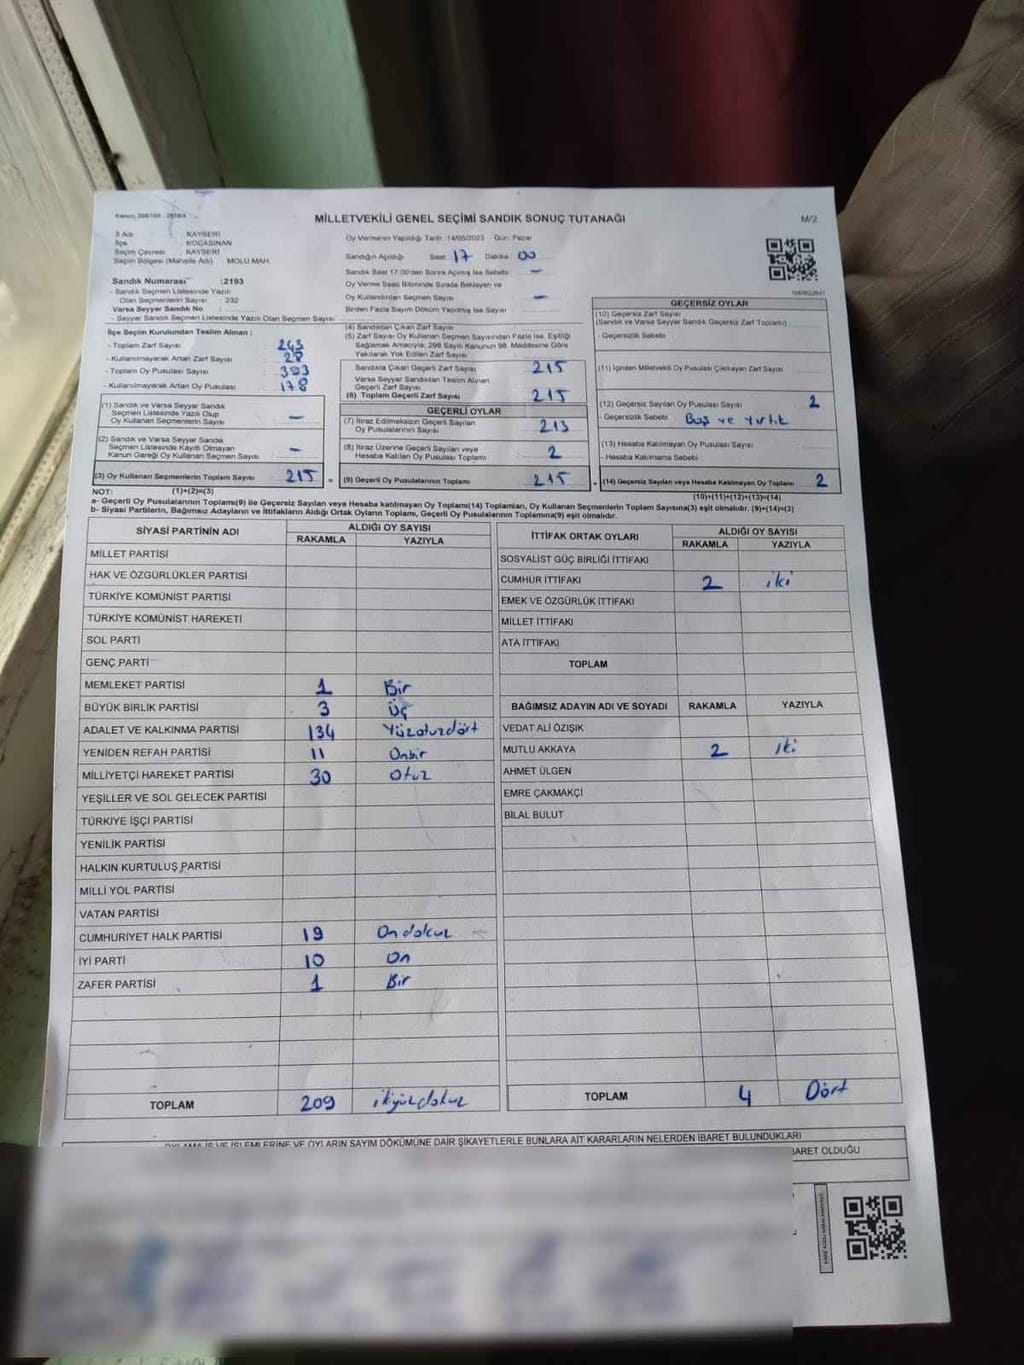 MİLLETVEKİLİ GENEL SEÇİMİ SANDIK SONUÇ TUTANAĞI
M/2
İl Adı KAYSERİ
İlçe KOCASİNAN
Seçim Çevresi KAYSERİ
Seçim Bölgesi (Mahalle Adı) MOLU MAH.
Sandık Numarası :2193
- Sandık Seçmen Listesinde Yazılı
Olan Seçmenlerin Sayısı : 232
Varsa Seyyar Sandık No :
- Seyyar Sandık Seçmen Listesinde Yazılı Olan Seçmen Sayısı :
Oy Vermenin Yapıldığı Tarih :14/05/2023 Gün: Pazar
Sandığın Açıldığı Saat 17 Dakika 00
Sandık Saat 17.00'den Sonra Açılmış İse Sebebi : –
Oy Verme Saati Bitiminde Sırada Bekleyen ve
Oy Kullandırılan Seçmen Sayısı –
Birden Fazla Sayım Döküm Yapılmış İse Sayısı
İlçe Seçim Kurulundan Teslim Alınan :
- Toplam Zarf Sayısı : 243
- Kullanılmayarak Artan Zarf Sayısı : 28
- Toplam Oy Pusulası Sayısı : 393
- Kullanılmayarak Artan Oy Pusulası : 178
(1) Sandık ve Varsa Seyyar Sandık
Seçmen Listesinde Yazılı Olup
Oy Kullanan Seçmenlerin Sayısı –
(2) Sandık ve Varsa Seyyar Sandık
Seçmen Listesinde Kayıtlı Olmayan
Kanun Gereği Oy Kullanan Seçmen Sayısı –
(3) Oy Kullanan Seçmenlerin Toplam Sayısı 215
(1)+(2)=(3)
(4) Sandıktan Çıkan Zarf Sayısı
(5) Zarf Sayısı Oy Kullanan Seçmen Sayısından Fazla İse, Eşitliği
Sağlamak Amacıyla; 298 Sayılı Kanunun 98. Maddesine Göre
Yakılarak Yok Edilen Zarf Sayısı
Sandıkta Çıkan Geçerli Zarf Sayısı 215
Varsa Seyyar Sandıktan Teslim Alınan
Geçerli Zarf Sayısı
(6) Toplam Geçerli Zarf Sayısı 215
GEÇERLİ OYLAR
(7) İtiraz Edilmeksizin Geçerli Sayılan
Oy Pusulalarının Sayısı 213
(8) İtiraz Üzerine Geçerli Sayılan veya
Hesaba Katılan Oy Pusulası Toplamı 2
(9) Geçerli Oy Pusulalarının Toplamı 215
GEÇERSİZ OYLAR
(10) Geçersiz Zarf Sayısı
(Sandık ve Varsa Seyyar Sandık Geçersiz Zarf Toplamı) :
- Geçersizlik Sebebi :
(11) İçinden Milletvekili Oy Pusulası Çıkmayan Zarf Sayısı
(12) Geçersiz Sayılan Oy Pusulası Sayısı 2
- Geçersizlik Sebebi : Boş ve Yırtık
(13) Hesaba Katılmayan Oy Pusulası Sayısı
- Hesaba Katılmama Sebebi :
(14) Geçersiz Sayılan veya Hesaba Katılmayan Oy Toplamı 2
(10)+(11)+(12)+(13)=(14)
NOT:
a- Geçerli Oy Pusulalarının Toplamı(9) ile Geçersiz Sayılan veya Hesaba katılmayan Oy Toplamı(14) Toplamları, Oy Kullanan Seçmenlerin Toplam Sayısına(3) eşit olmalıdır. (9)+(14)=(3)
b- Siyasi Partilerin, Bağımsız Adayların ve İttifakların Aldığı Ortak Oyların Toplamı, Geçerli Oy Pusulalarının Toplamına(9) eşit olmalıdır.
SİYASİ PARTİNİN ADI ALDIĞI OY SAYISI
RAKAMLA YAZIYLA
MİLLET PARTİSİ
HAK VE ÖZGÜRLÜKLER PARTİSİ
TÜRKİYE KOMÜNİST PARTİSİ
TÜRKİYE KOMÜNİST HAREKETİ
SOL PARTİ
GENÇ PARTİ
MEMLEKET PARTİSİ 1 Bir
BÜYÜK BİRLİK PARTİSİ 3 Üç
ADALET VE KALKINMA PARTİSİ 134 Yüzotuzdört
YENİDEN REFAH PARTİSİ 11 Onbir
MİLLİYETÇİ HAREKET PARTİSİ 30 Otuz
YEŞİLLER VE SOL GELECEK PARTİSİ
TÜRKİYE İŞÇİ PARTİSİ
YENİLİK PARTİSİ
HALKIN KURTULUŞ PARTİSİ
MİLLİ YOL PARTİSİ
VATAN PARTİSİ
CUMHURİYET HALK PARTİSİ 19 Ondokuz
İYİ PARTİ 10 On
ZAFER PARTİSİ 1 Bir
TOPLAM 209 ikiyüzdokuz
İTTİFAK ORTAK OYLARI ALDIĞI OY SAYISI
RAKAMLA YAZIYLA
SOSYALİST GÜÇ BİRLİĞİ İTTİFAKI
CUMHUR İTTİFAKI 2 iki
EMEK VE ÖZGÜRLÜK İTTİFAKI
MİLLET İTTİFAKI
ATA İTTİFAKI
TOPLAM
BAĞIMSIZ ADAYIN ADI VE SOYADI RAKAMLA YAZIYLA
VEDAT ALİ ÖZIŞIK
MUTLU AKKAYA 2 iki
AHMET ÜLGEN
EMRE ÇAKMAKÇİ
BİLAL BULUT
TOPLAM 4 Dört
OYLAMA İŞ VE İŞLEMLERİNE VE OYLARIN SAYIM DÖKÜMÜNE DAİR ŞİKAYETLERLE BUNLARA AİT KARARLARIN NELERDEN İBARET BULUNDUKLARI
BARET OLDUĞU